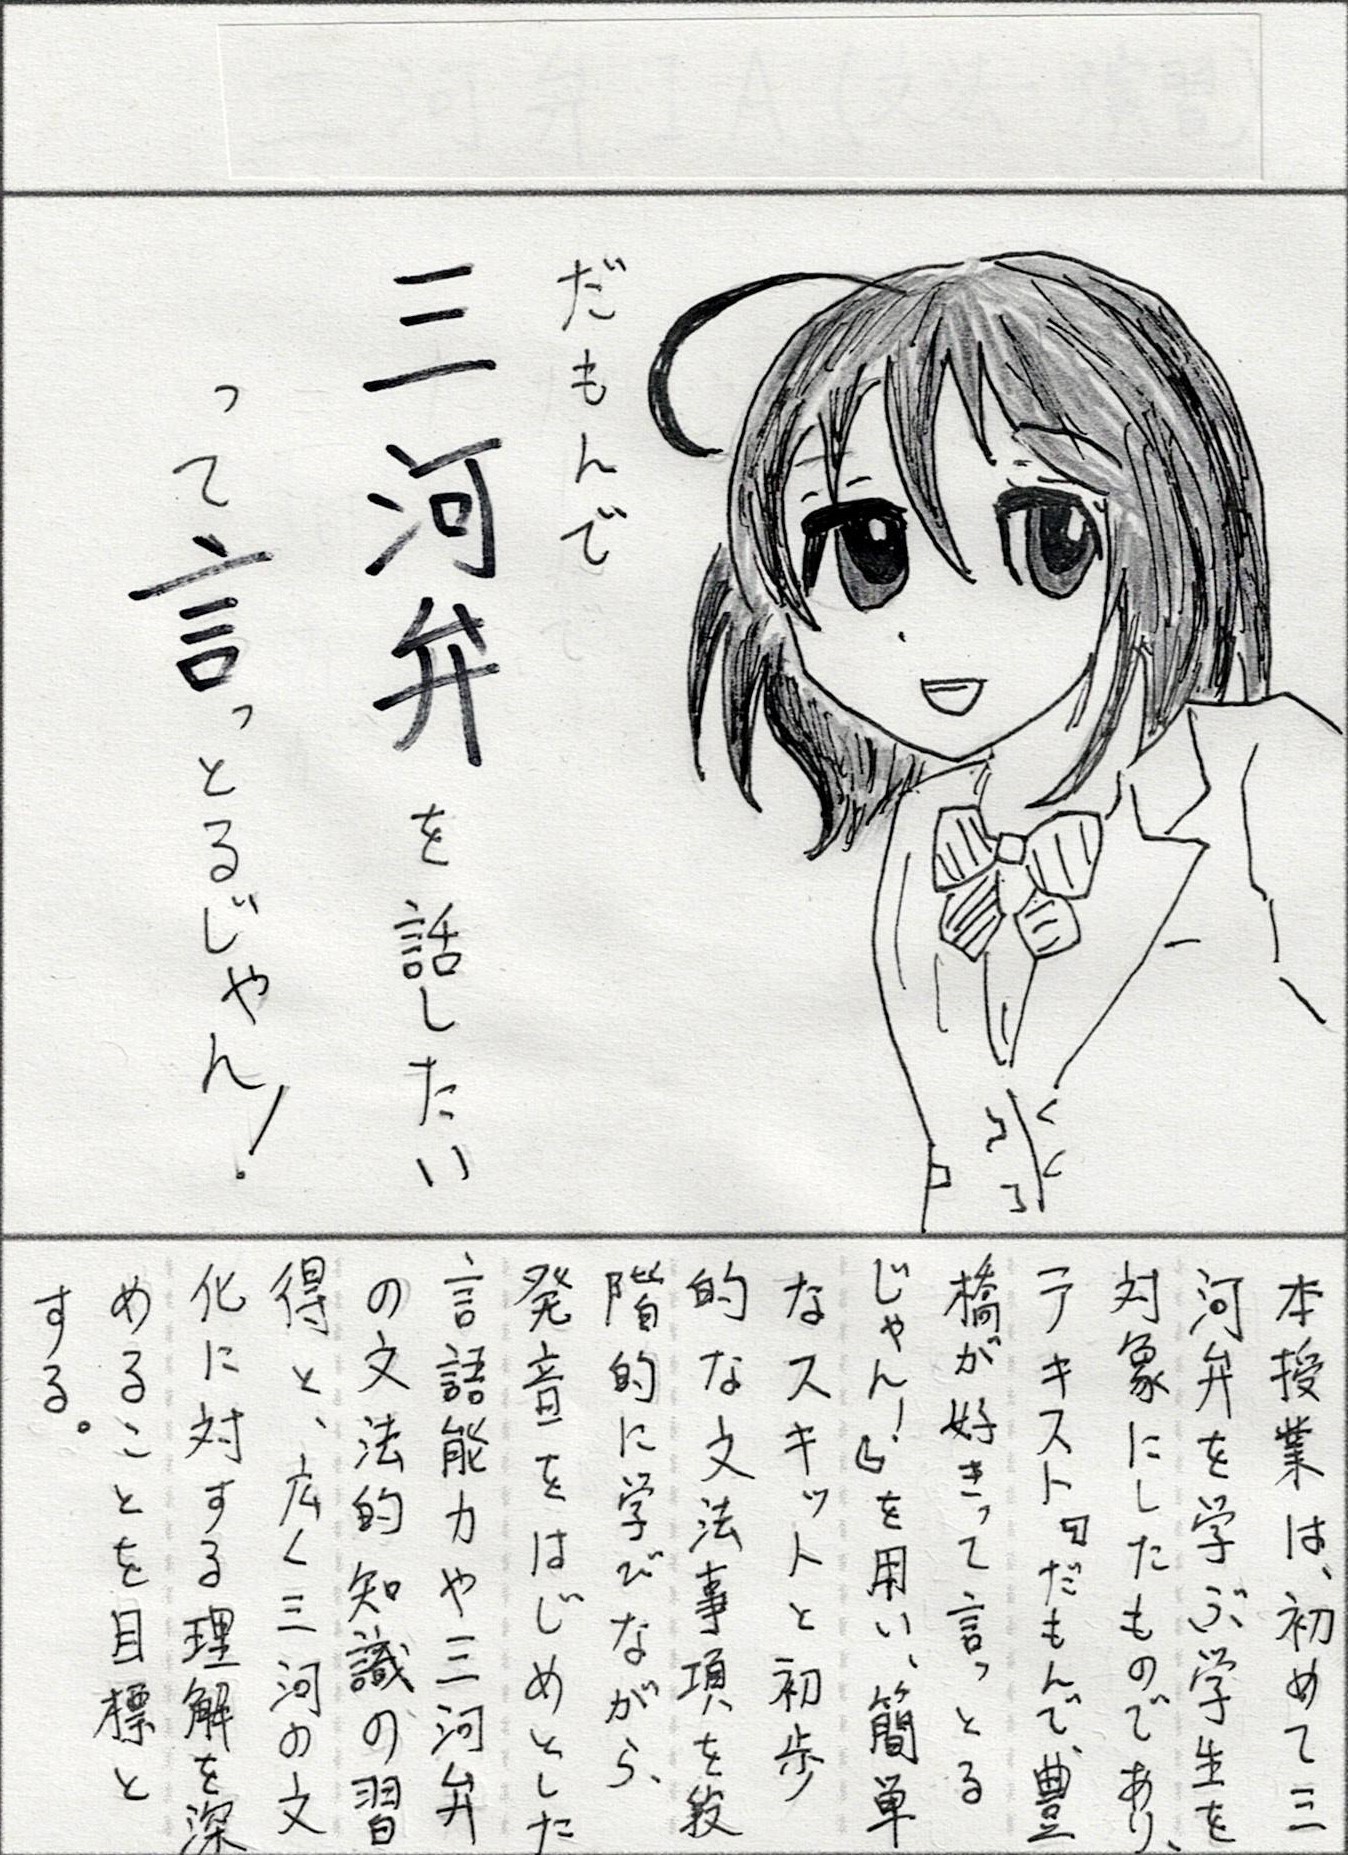 だもんで
三河弁を話したい
って言っとるじゃん！
本授業は、初めて三
河弁を学ぶ学生を
対象にしたものであり、
テキスト『だもんで豊
橋が好きって言っとる
じゃん！』を用い、簡単
なスキットと初歩
的な文法事項を段
階的に学びながら、
発音をはじめとした
言語能力や三河弁
の文法的知識の習
得と、広く三河の文
化に対する理解を深
めることを目標と
する。